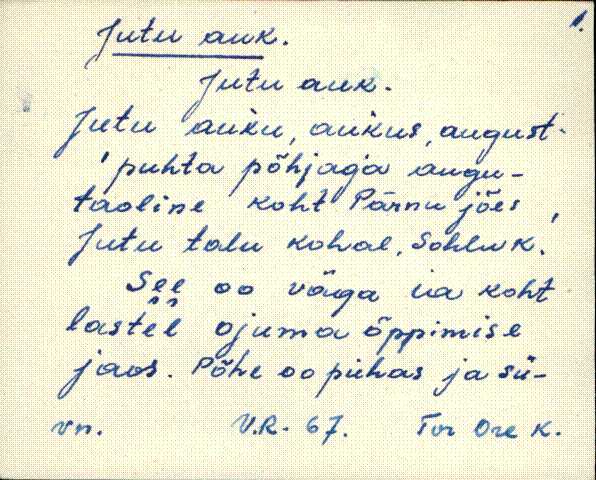 1.
Jutu auk.
Jutu auk.
Jutu auku, aukus, august-
'puhta põhjaga augu-
taoline koht Pärnu jões,
Jutu talu kohal, Sohlu k.
See oo väga ia koht
lastel ojuma õppimise
jaos. Põhe oo puhas ja sü-
vn. V.R. 67. Tor Ore k.